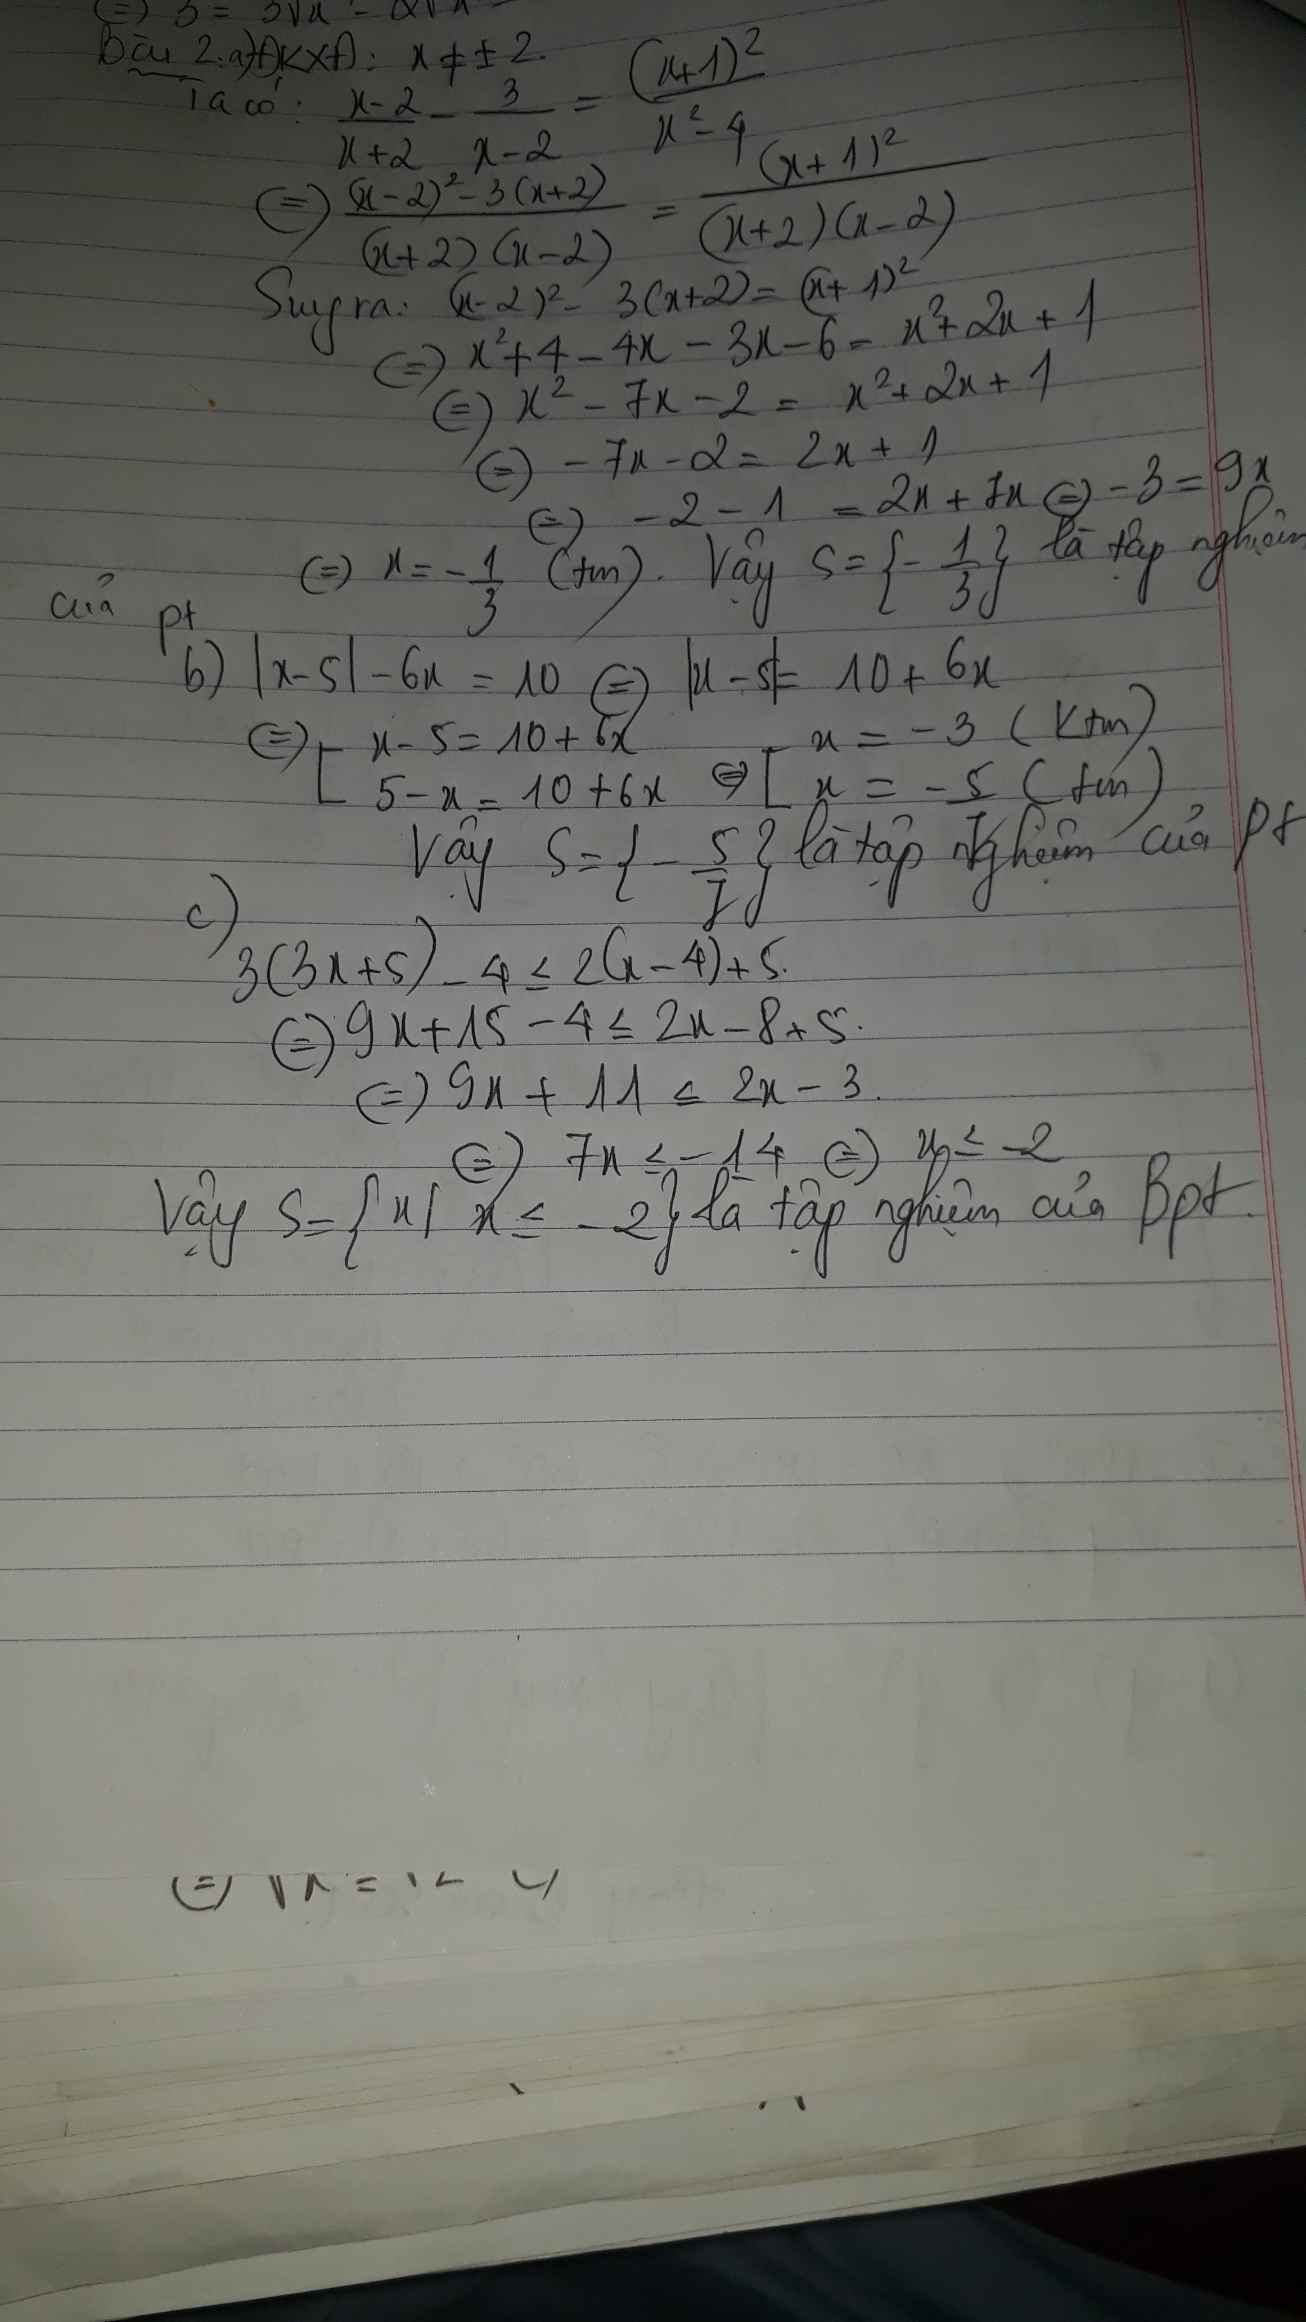 (=) 3 = 3√x - 2√x
Bài 2: a) ĐKXĐ: x ≠ ± 2.
Ta có: (x-2)/(x+2) - 3/(x-2) = (x+1)²/(x²-4)
(=) ((x-2)² - 3(x+2))/((x+2)(x-2)) = (x+1)²/((x+2)(x-2))
Suy ra: (x-2)² - 3(x+2) = (x+1)²
(=) x² + 4 - 4x - 3x - 6 = x² + 2x + 1
(=) x² - 7x - 2 = x² + 2x + 1
(=) -7x - 2 = 2x + 1
(=) -2 - 1 = 2x + 7x (=) -3 = 9x
(=) x = -1/3 (tm). Vậy S = {-1/3} là tập nghiệm
của pt
b) |x-5| - 6x = 10 (=) |x-5| = 10 + 6x
(=) [ x - 5 = 10 + 6x
5 - x = 10 + 6x (=) [ x = -3 (Ktm)
x = -5/7 (tm)
Vậy S = {-5/7} là tập nghiệm của pt
c)
3(3x+5) - 4 ≤ 2(x-4) + 5.
(=) 9x + 15 - 4 ≤ 2x - 8 + 5.
(=) 9x + 11 ≤ 2x - 3.
(=) 7x ≤ -14 (=) x ≤ -2
Vậy S = {x | x ≤ -2} là tập nghiệm của Bpt.